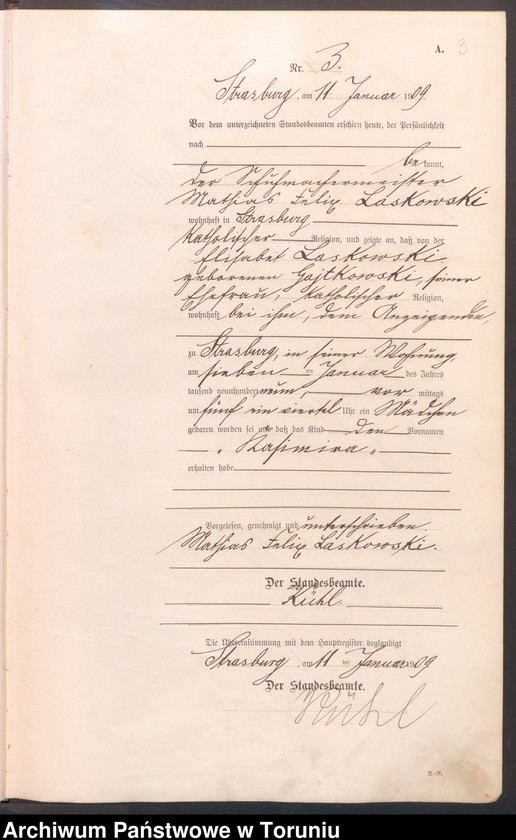 A. 3
Nr. 3.
Strasburg, am 11 Januar 1909
Vor dem unterzeichneten Standesbeamten erschien heute, der Persönlichkeit
nach
bekannt,
der Schuhmachermeister
Mathias Felix Laskowski
wohnhaft in Strasburg
katholischer Religion, und zeigte an, daß von der
Elisabet Laskowski
geborenen Gajtkowski, seiner
Ehefrau, katholischer Religion,
wohnhaft bei ihm, dem Anzeigenden,
zu Strasburg, in seiner Wohnung,
am sieben ten Januar des Jahres
tausend neunhundert neun, vor mittags
um fünf ein viertel Uhr ein Mädchen
geboren worden sei und daß das Kind den Vornamen
„Kasimira"
erhalten habe
Vorgelesen, genehmigt und unterschrieben.
Mathias Felix Laskowski.
Der Standesbeamte.
Kühl.
Die Übereinstimmung mit dem Hauptregister beglaubigt
Strasburg, am 11 ten Januar 1909
Der Standesbeamte.
Kühl
Archiwum Państwowe w Toruniu